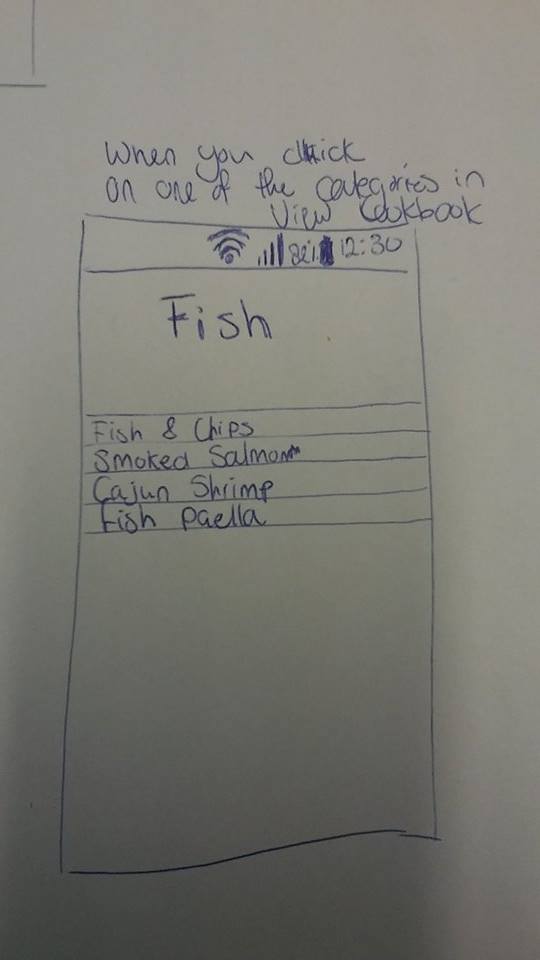 When you click
on one of the categories in
View Cookbook
12:30
Fish
Fish & Chips
Smoked Salmon
Cajun Shrimp
Fish paella